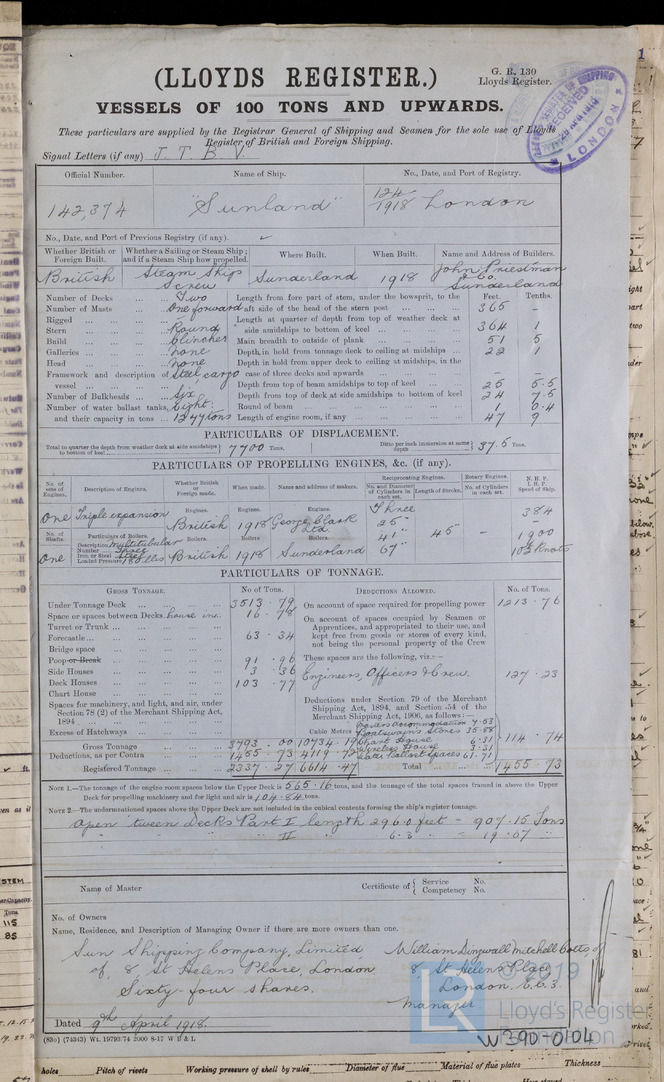 (LLOYDS REGISTER.)
G. R. 130
Lloyds Register.
VESSELS OF 100 TONS AND UPWARDS.
These particulars are supplied by the Registrar General of Shipping and Seamen for the sole use of Lloyds
Register of British and Foreign Shipping.
RECEIVED
LONDON
Signal Letters (if any) J. T. B. V.
Official Number. Name of Ship. No., Date, and Port of Registry.
142,374 "Sunland" 124/1918 London
No., Date, and Port of Previous Registry (if any).
Whether British or Foreign Built. Whether a Sailing or Steam Ship; and if a Steam Ship how propelled. Where Built. When Built. Name and Address of Builders.
British Steam Ship Screw Sunderland 1918 John Priestman & Co. Sunderland
Feet. Tenths.
Number of Decks Two Length from fore part of stem, under the bowsprit, to the
Number of Masts One forward aft side of the head of the stern post 365 –
Rigged Length at quarter of depth from top of weather deck at
Stern Round side amidships to bottom of keel 364 1
Build Clincher Main breadth to outside of plank 51 5
Galleries none Depth in hold from tonnage deck to ceiling at midships 22 1
Head none Depth in hold from upper deck to ceiling at midships, in the
Framework and description of steel cargo case of three decks and upwards – –
vessel Depth from top of beam amidships to top of keel 25 5.5
Number of Bulkheads Six Depth from top of deck at side amidships to bottom of keel 24 7.5
Number of water ballast tanks, Eight: Round of beam 1 0.4
and their capacity in tons 1247 tons Length of engine room, if any 47 9
PARTICULARS OF DISPLACEMENT.
Total to quarter the depth from weather deck at side amidships to bottom of keel 7700 Tons. Ditto per inch immersion at same depth 37.5 Tons.
PARTICULARS OF PROPELLING ENGINES, &c. (if any).
No. of sets of Engines. Description of Engines. Whether British or Foreign made. When made. Name and address of makers. Reciprocating Engines. Rotary Engines. N. H. P. I. H. P. Speed of Ship.
No. and Diameter of Cylinders in each set. Length of Stroke. No. of Cylinders in each set.
One Triple expansion Engines. British Engines. 1918 Engines. George Clark Ltd Three 25" 41" 67" 45" – 384 1900 10½ Knots
No. of Shafts. Particulars of Boilers. Boilers. Boilers Boilers.
One Description Multitubular
Number Three
Iron or Steel Steel
Loaded Pressure 180 lbs British 1918 Sunderland
PARTICULARS OF TONNAGE.
GROSS TONNAGE. No of Tons. DEDUCTIONS ALLOWED. No. of Tons.
Under Tonnage Deck 3513.79 On account of space required for propelling power 1213.76
Space or spaces between Decks house in. 16.78 On account of spaces occupied by Seamen or
Turret or Trunk Apprentices, and appropriated to their use, and
Forecastle 63.34 kept free from goods or stores of every kind,
Bridge space not being the personal property of the Crew
Poop or Break 91.96 These spaces are the following, viz:—
Side Houses 3.36 Engineers, Officers & Crew. 127.23
Deck Houses 103.77
Chart House Deductions under Section 79 of the Merchant
Spaces for machinery, and light, and air, under Shipping Act, 1894, and Section 54 of the
Section 78 (2) of the Merchant Shipping Act, Merchant Shipping Act, 1906, as follows:—
1894 Masters Accommodation 7.53
Excess of Hatchways Cubic Metres Boatswain's Stores 35.88
Gross Tonnage 3793.00 10734.19 Chart House 6.31 114.74
Deductions, as per Contra 1455.73 4119.72 Wireless House 3.31
Water Ballast spaces 61.71
Registered Tonnage 2337.27 6614.47 Total 1455.73
NOTE 1.—The tonnage of the engine room spaces below the Upper Deck is 565.16 tons, and the tonnage of the total spaces framed in above the Upper
Deck for propelling machinery and for light and air is 104.84 tons.
NOTE 2.—The undermentioned spaces above the Upper Deck are not included in the cubical contents forming the ship's register tonnage.
Open 'tween decks Part I length 296.0 feet = 907.15 Tons
" " " " II " 6.3 " = 19.67 "
Name of Master Certificate of Service No.
Competency No.
No. of Owners
Name, Residence, and Description of Managing Owner if there are more owners than one.
Sun Shipping Company, Limited William Dingwall Mitchell Cotts, of
of, 8 St Helens Place, London, 8 St Helens Place
Sixty-four shares. London. E.C.3.
Manager
© 2019
Lloyd's Register
Foundation
Dated 9th April 1918.
W390-0104
(830) (74343) Wt. 19793/74 2000 8-17 W B & L
holes Pitch of rivets Working pressure of shell by rules Diameter of flue Material of flue plates Thickness